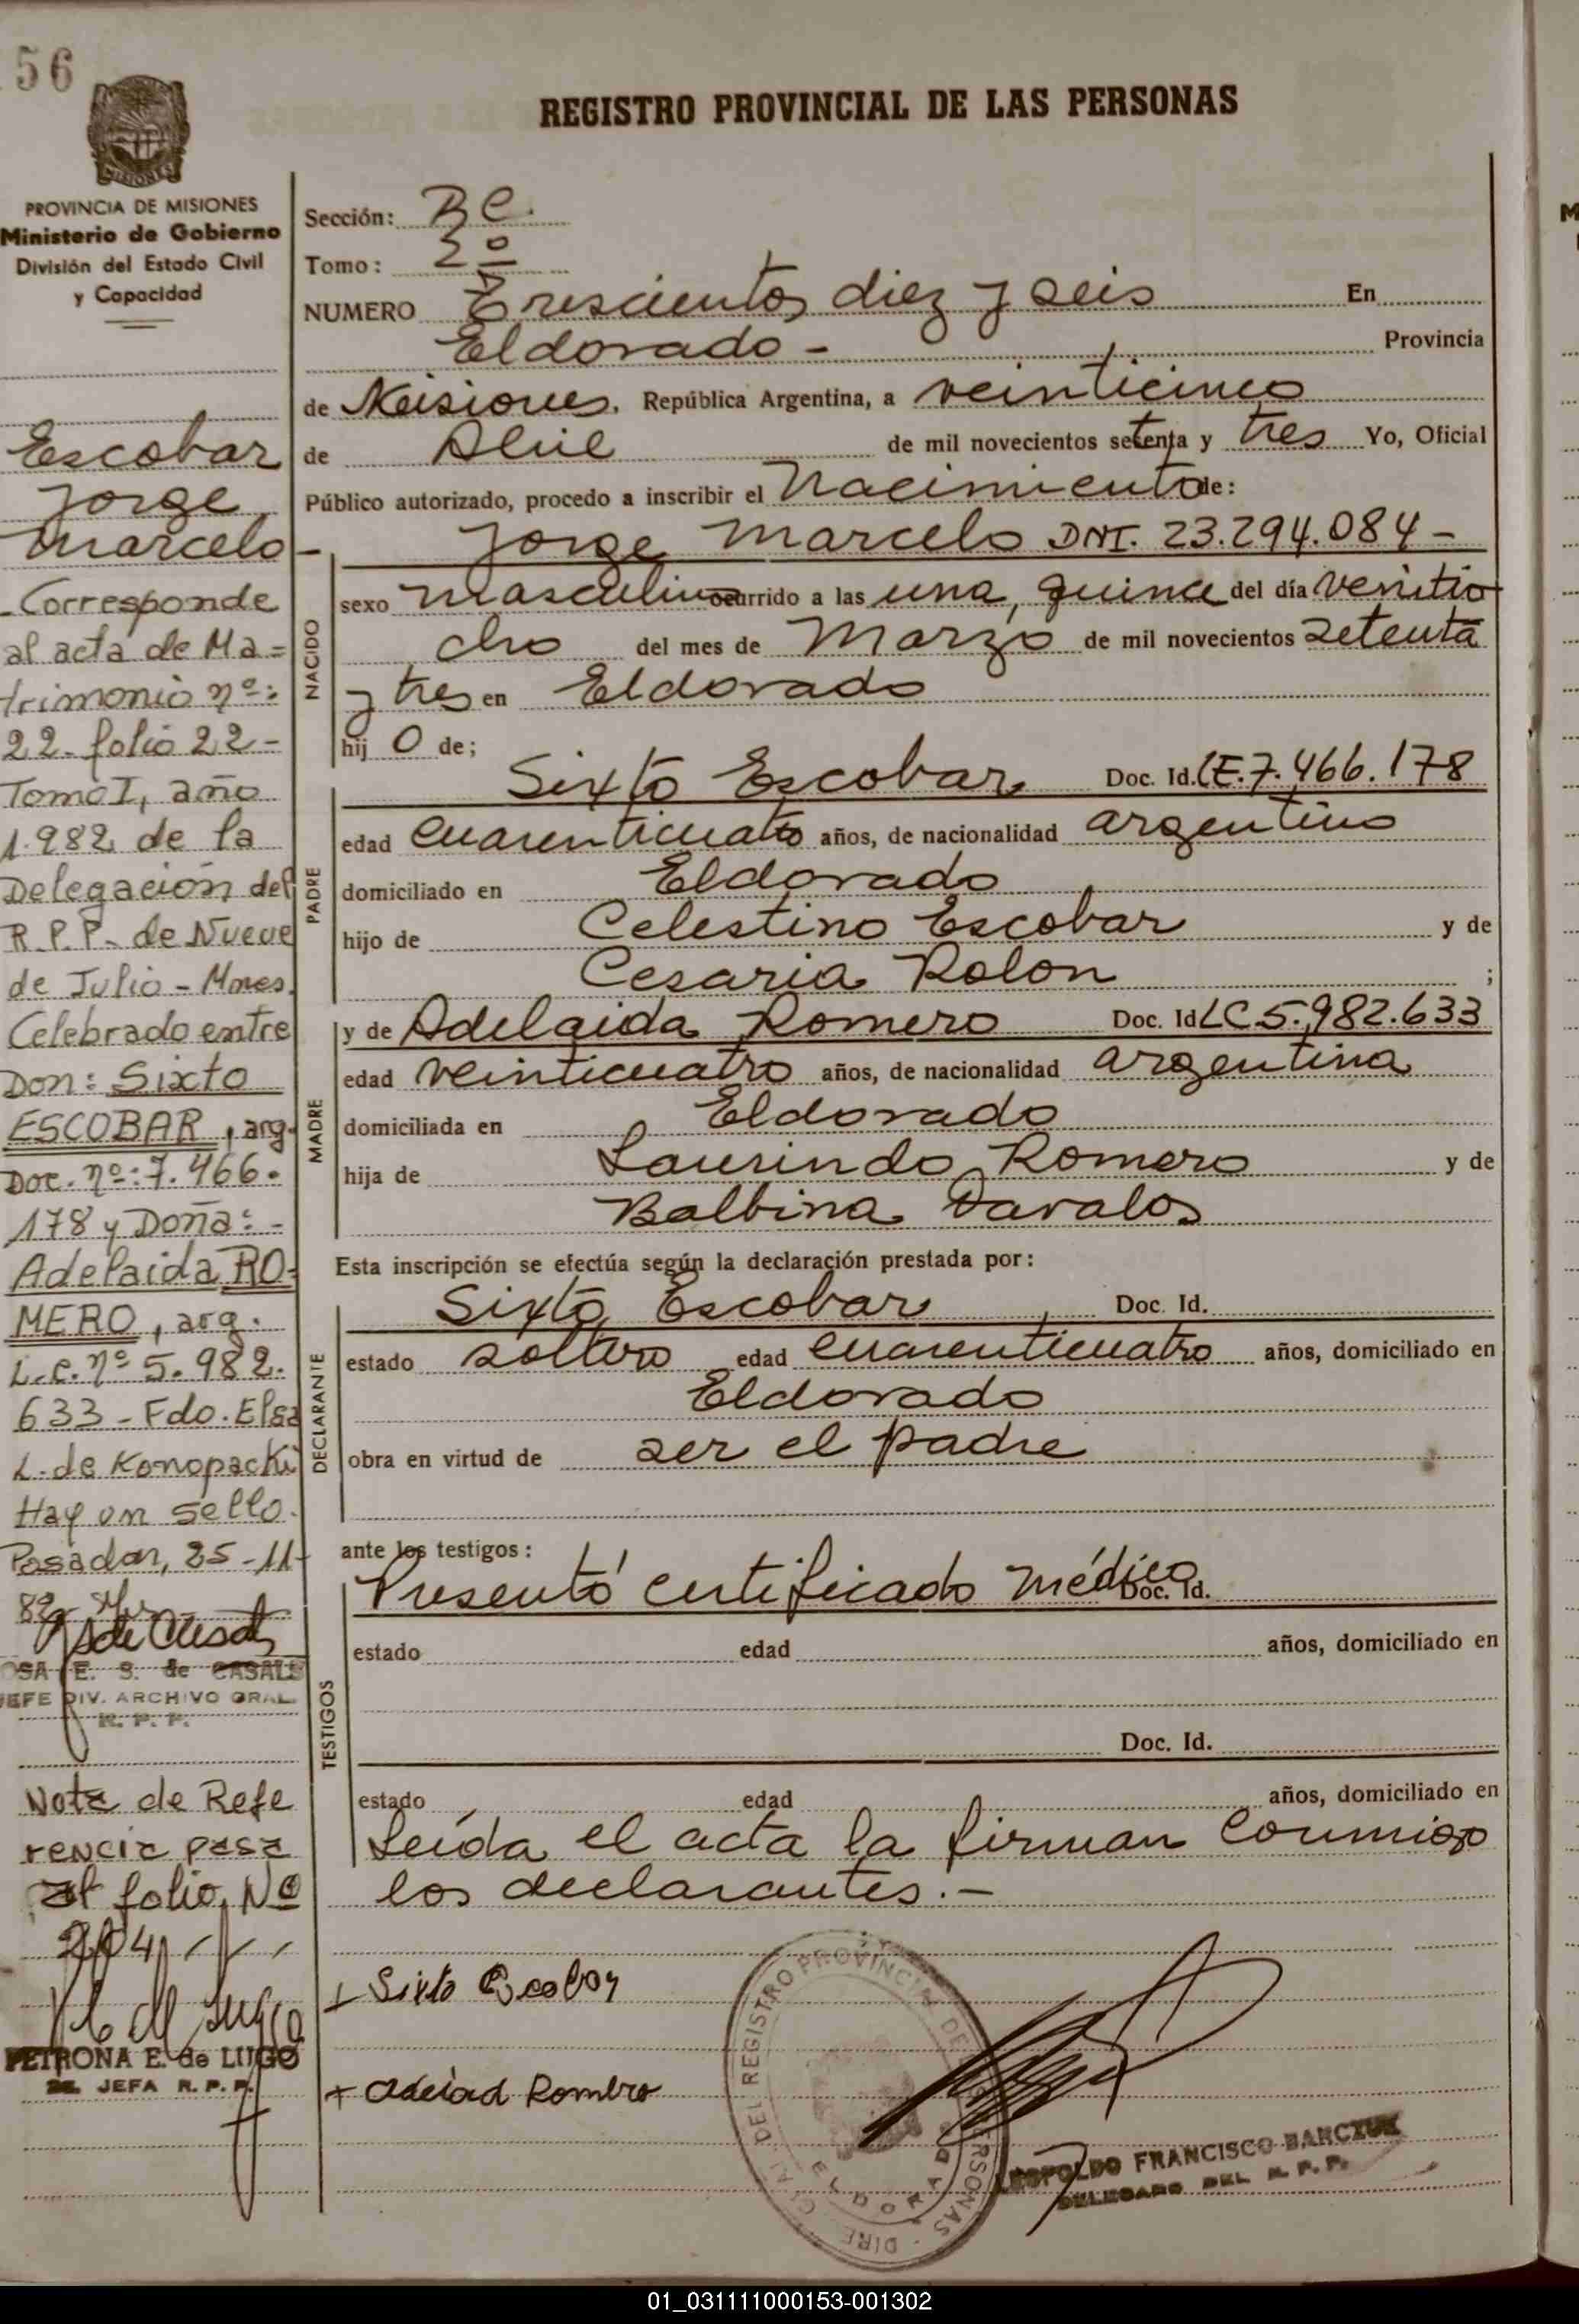 56
REGISTRO PROVINCIAL DE LAS PERSONAS
MISIONES
PROVINCIA DE MISIONES
Ministerio de Gobierno
División del Estado Civil
y Capacidad
Escobar
Jorge
Marcelo
Corresponde
al acta de Ma=
trimonio nº:
22- folio 22-
Tomo I, año
1.982 de la
Delegación del
R.P.P. de Nueve
de Julio - Mnes.
Celebrado entre
Don: Sixto
ESCOBAR, arg.
Doc. nº: 7.466.
178 y Doña:-
Adelaida RO-
MERO, arg.
L.C. nº 5.982.
633 - Fdo. Elsa
L. de Konopacki
Hay un sello.
Posadas, 25-11-
82-
OSA E. S. de CASALS
JEFE DIV. ARCHIVO GRAL.
R. P. P.
Nota de Refe
rencia pasa
al folio Nº
204
PETRONA E. de LUGO
JEFA R. P. P.
Sección:
Tomo: 2º
NUMERO Trescientos diez y seis En
Eldorado - Provincia
de Misiones. República Argentina, a veinticinco
de Abril de mil novecientos setenta y tres Yo, Oficial
Público autorizado, procedo a inscribir el Nacimiento de:
Jorge Marcelo DNI. 23.294.084-
NACIDO
sexo masculino ocurrido a las una, quince del día veintio
cho del mes de Marzo de mil novecientos setenta
y tres en Eldorado
hij o de;
Sixto Escobar Doc. Id. LE.7.466.178
PADRE
edad cuarenticuatro años, de nacionalidad argentino
domiciliado en Eldorado
hijo de Celestino Escobar y de
Cesaria Rolon ;
y de Adelaida Romero Doc. Id LC 5.982.633
MADRE
edad veinticuatro años, de nacionalidad argentina
domiciliada en Eldorado
hija de Laurindo Romero y de
Balbina Davalos
Esta inscripción se efectúa según la declaración prestada por:
Sixto Escobar, Doc. Id.
DECLARANTE
estado soltero edad cuarenticuatro años, domiciliado en
Eldorado
obra en virtud de ser el padre
ante los testigos:
Presentó certificado médico Doc. Id.
TESTIGOS
estado edad años, domiciliado en
Doc. Id.
estado edad años, domiciliado en
Leída el acta la firman conmigo
los declarantes.-
Sixto Escobar
+ Adelaid Romero
DEL REGISTRO PROVINCIAL DE LAS PERSONAS
ELDORADO
LEOPOLDO FRANCISCO BARCZUK
DELEGADO DEL R. P. P.
01_031111000153-001302